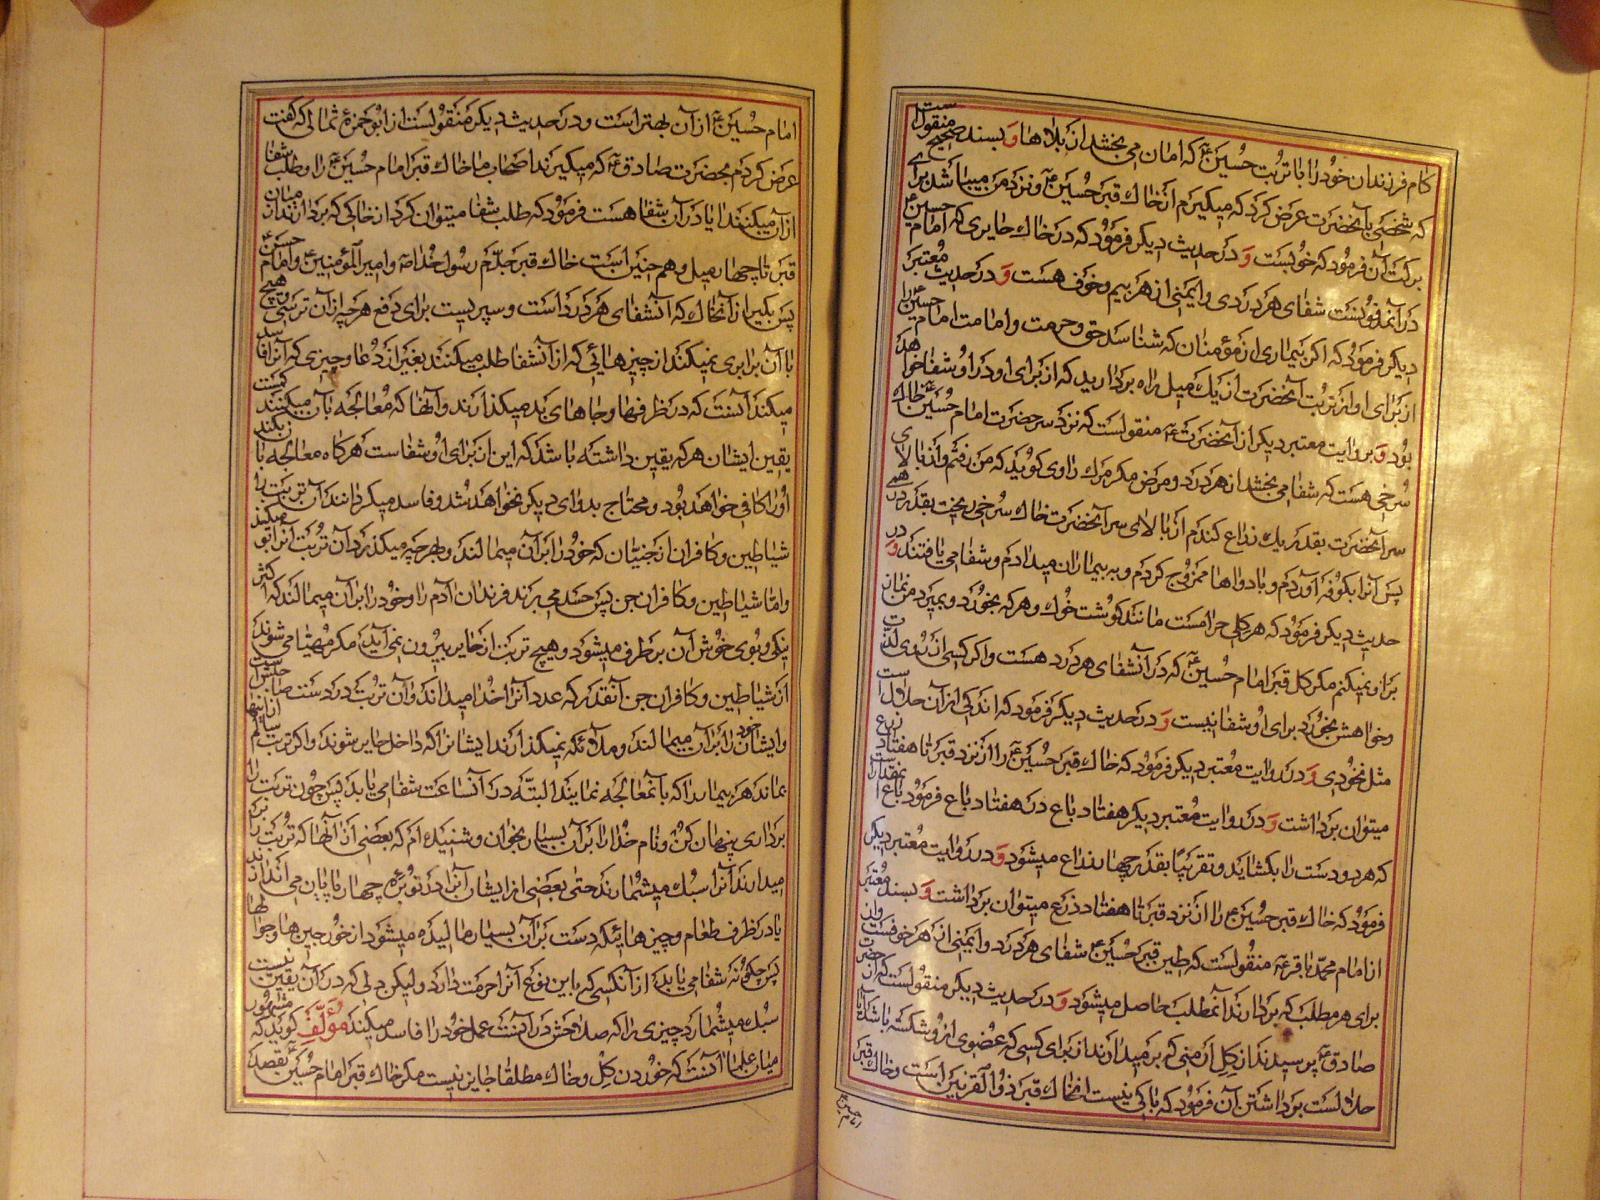 کام فرزندان خود را با تربت حسین ع که امان می بخشد از بلاها و بسند صحیح منقولست
که شخصی بآنحضرت عرض کرد که میکیرم از خاك قبر حسین ع و نزد من میباشد برای
برکت آن فرمود که خوبست و در حدیث دیکر فرمود که در خاك حایری که امام حسین ع
در آن مدفونست شفای هر دردی و ایمنی از هر بیم و خوف هست و در حدیث معتبر
دیکر فرمود که اکر بیماری از مؤمنان که شناسد حق و حرمت و امامت امام حسین ع را
از برای او از تربت آنحضرت از یك میل راه بردارید که از برای او در او شفا خواهد
بود و بروایت معتبر دیکر از آنحضرت ع منقولست که نزد سر حضرت امام حسین ع خاك
سرخی هست که شفا می بخشد از هر درد و مرض مکر مرك راوی کوید که من رفتم و از بالای
سر آنحضرت بقدر یك ذراع کندم از بالای سر آنحضرت خاك سرخی ریخت بقدر درهمی
پس آنرا بکوفه آوردم و با دواها ممزوج کردم و به بیماران میدادم و شفا می یافتند و در
حدیث دیکر فرمود که هر کلی حرامست مانند کوشت خوك و هر که بخورد و بمیرد من نماز
بر او نمیکنم مکر کل قبر امام حسین ع که در آن شفای هر درد هست و اکر کسی از روی لذت
و خواهش بخورد برای او شفا نیست و در حدیث دیکر فرمود که اندکی از آن حلال است
مثل نخودی و در روایت معتبر دیکر فرمود که خاك قبر حسین ع را از نزد قبر تا هفتاد ذرع
میتوان برداشت و در روایت معتبر دیکر هفتاد باع در هفتاد باع فرمود باع آنمقدار است
که هر دو دست را بکشاید و تقریبًا بقدر چهار ذراع میشود و در روایت معتبر دیکر
فرمود که خاك قبر حسین ع را از نزد قبر تا هفتاد ذرع میتوان برداشت و بسند معتبر
از امام محمد باقر ع منقولست که طین قبر حسین ع شفای هر درد و ایمنی از هر خوفست و از
برای هر مطلب که بردارند آنمطلب حاصل میشود و در حدیث دیکر منقولست که از حضرت
صادق ع پرسیدند از کل ارمنی که برمیدارند از برای کسی که عضوی از او شکسته باشد آیا
حلالست برداشتن آن فرمود که باکی نیست از خاك قبر ذوالقرنین است و خاك قبر
امام حسین ع
امام حسین ع از آن بهتر است و در حدیث دیکر منقولست از ابو حمزه ثمالی که کفت
عرض کردم بحضرت صادق ع که میکیرند اصحاب ما خاك قبر امام حسین ع را و طلب شفا
از آن میکنند آیا در آن شفا هست فرمود که طلب شفا میتوان کرد از خاکی که بردارند از میان
قبر تا چهار میل و هم چنین است خاك قبر جدّم رسول خدا ص و امیر المؤمنین ع و امام حسن ع
پس بکیر از آنخاك که آن شفای هر درد است و سپریست برای دفع هر چه از آن ترسی و هیچ
با آن برابری نمیکند از چیزهائی که از آن شفا طلب میکنند بغیر از دعا و چیزی که آنرا فاسد
میکند آنست که در ظرفها و جاهای بد میکذارند و آنها که معالجه بآن میکنند کیست
یقین ایشان هر که یقین داشته باشد که این از برای او شفاست هر کاه معالجه با
او را کافی خواهد بود و محتاج بدوای دیکر نخواهد شد و فاسد میکردانند آن تربت را
شیاطین و کافران از جنیان که خود را بر آن میمالند و بهر چه میکذرد آن تربت آنرا بو میکنند
و اما شیاطین و کافران جن پس حسد می برند فرزندان آدم را و خود را بر آن میمالند که اکثر
نیکی و بوی خوش آن برطرف میشود و هیچ تربت از حایر بیرون نمی آید مکر مهیّا می شوند
از شیاطین و کافران جن آنقدر که عدد آنرا خدا میداند و آن تربت در دست صاحبش است
و ایشان خود را بر آن میمالند و ملائکه نمیکذارند ایشانرا که داخل حایر شوند و اکر تربت سالم
بماند هر بیمار را که بآن معالجه نمایند البتّه در آن ساعت شفا می یابد پس چون تربت را
برداری پنهان کن و نام خدا را بر آن بسیار بخوان و شنیده ام که بعضی از آنها که تربت را برمیدارند
آنرا سبك میشمارند حتی بعضی از ایشان آنرا در توبره چهارپایان می اندازند
یا در ظرف طعام و چیزهائیکه دست بر آن بسیار مالیده میشود از خورجین ها و جوالها
پس چکونه شفا می یابد از آن کسی که باین نوع آنرا حرمت دارد ولیکن دلی که در آن یقین نیست
سبك میشمارد چیزی را که صلاحش در آنست عمل خود را فاسد میکند مؤلّف کوید که مشهور
میان علما آنست که خوردن کل و خاك مطلقا جایز نیست مکر خاك قبر امام حسین ع بقصد